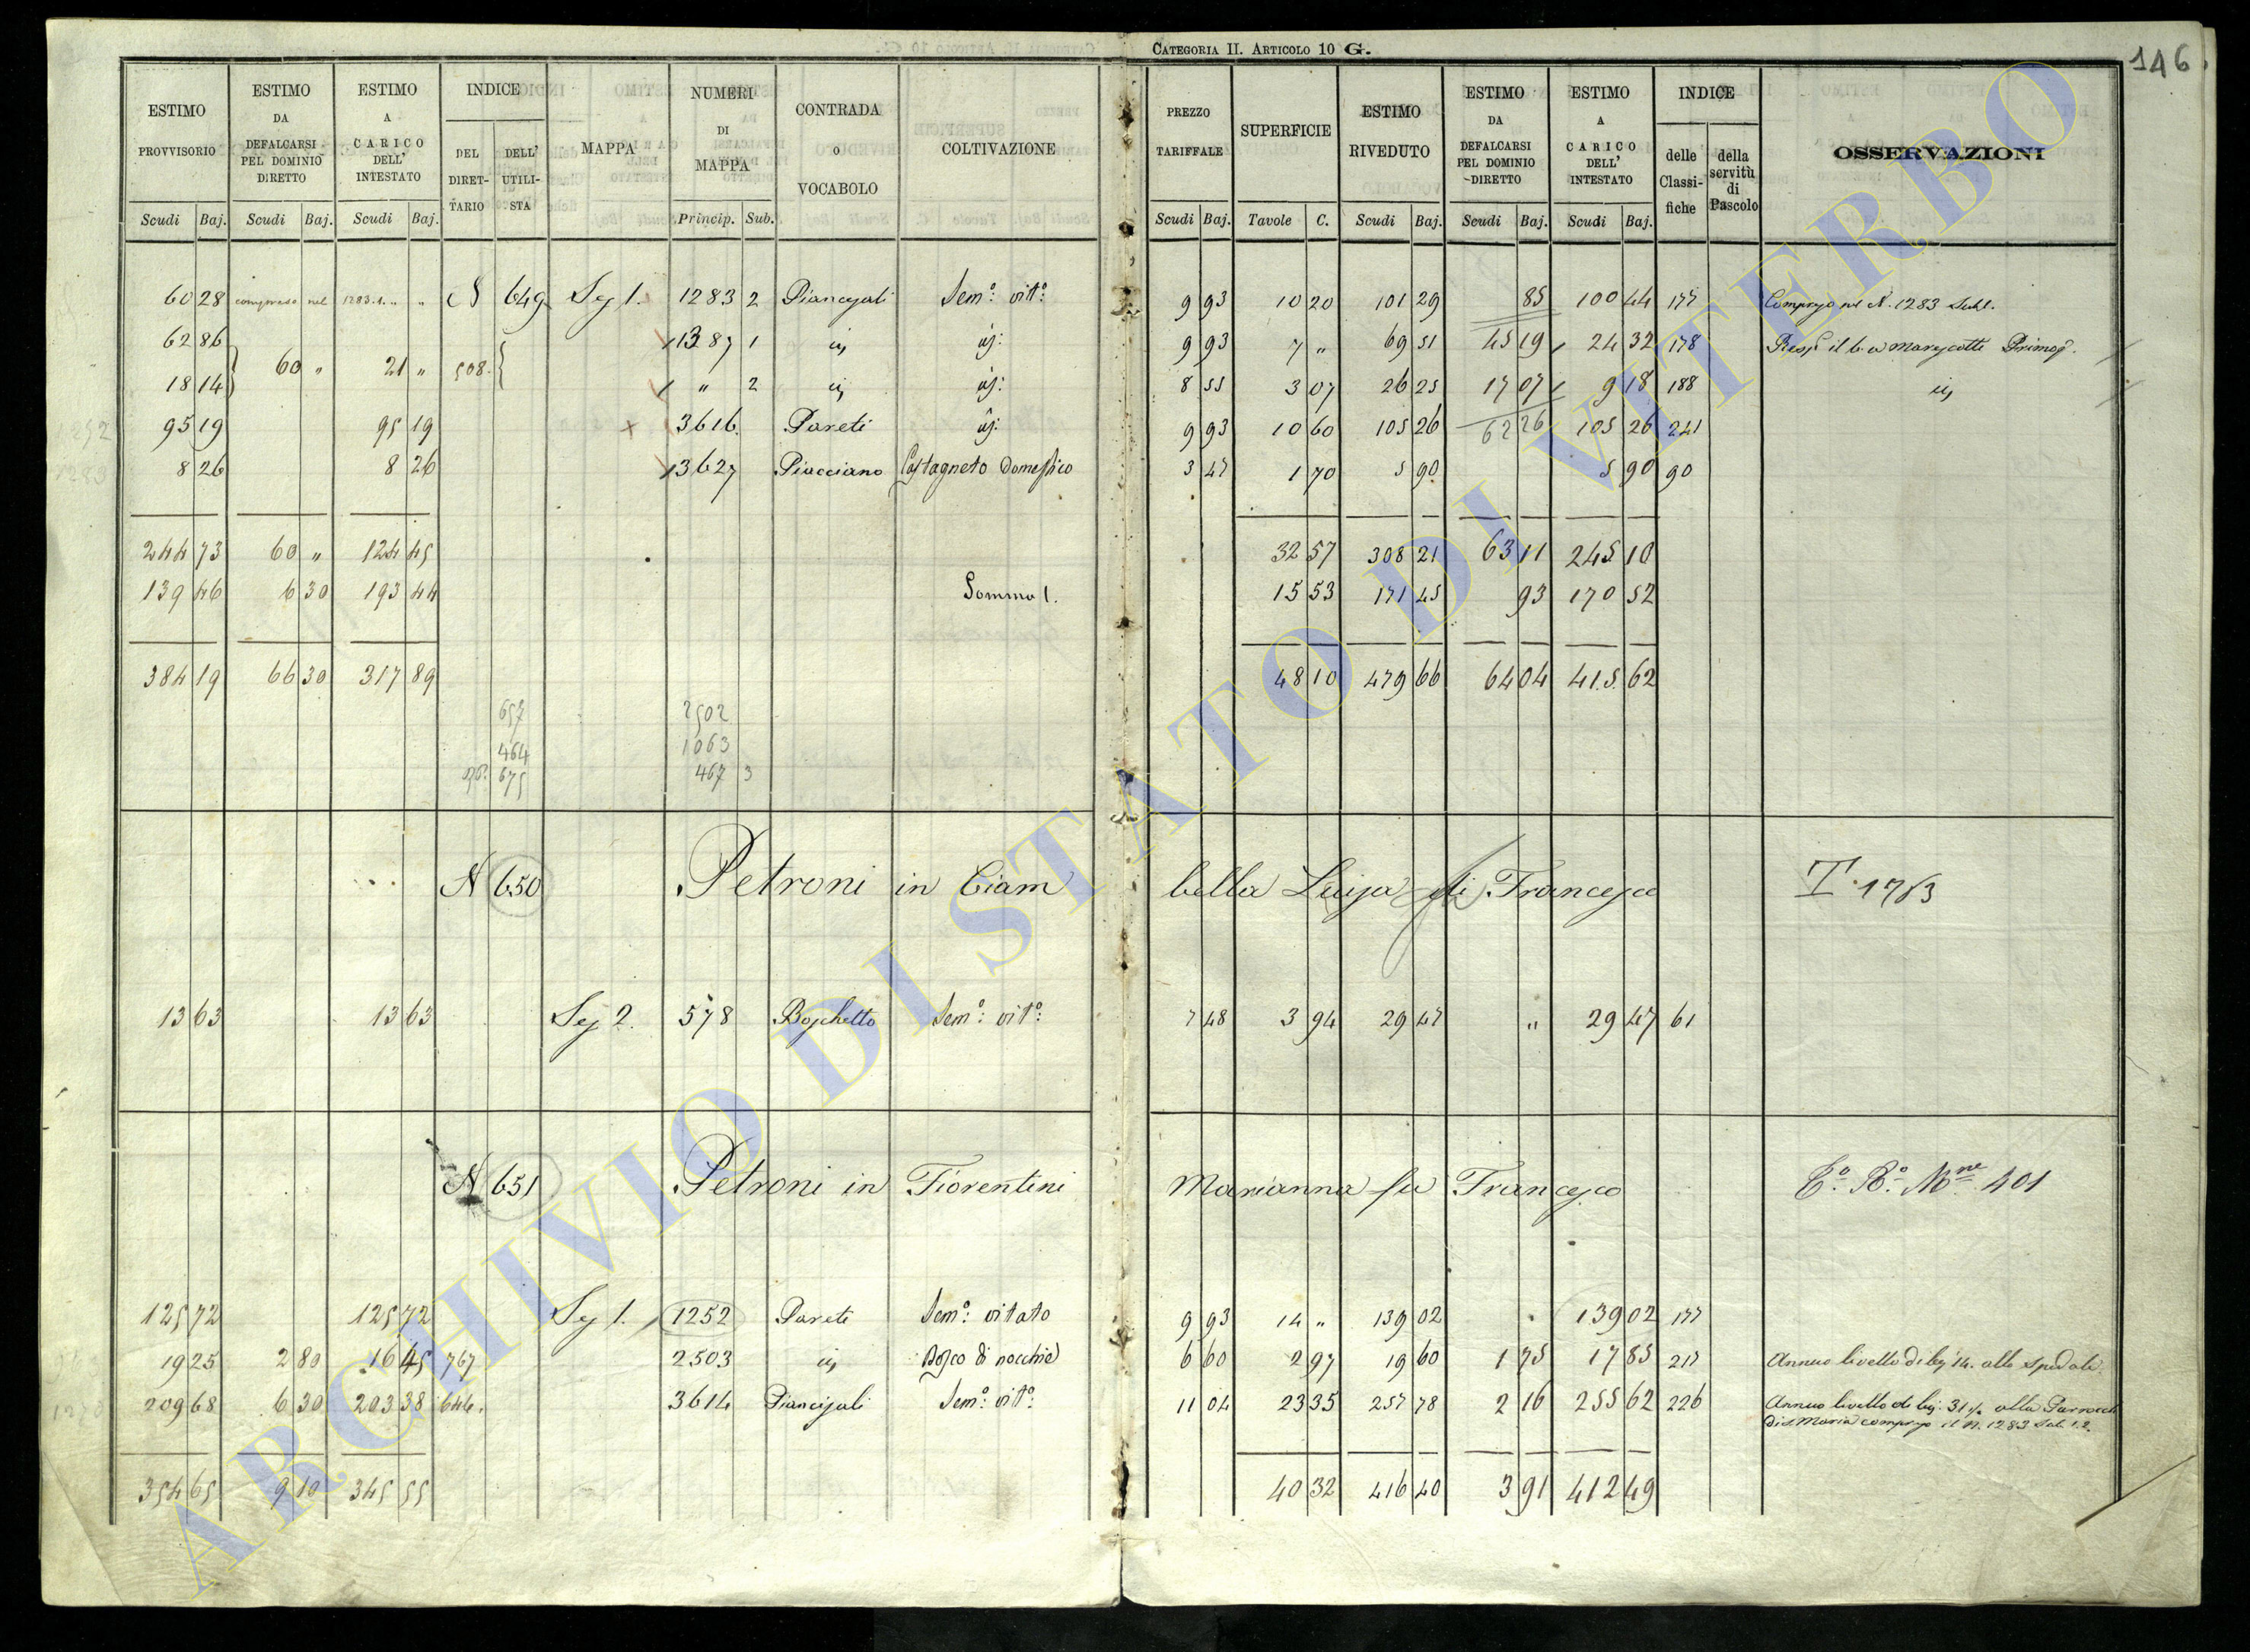 CATEGORIA II. ARTICOLO 10 G.
146.
ESTIMO PROVVISORIO Scudi Baj. ESTIMO DA DEFALCARSI PEL DOMINIO DIRETTO Scudi Baj. ESTIMO A CARICO DELL' INTESTATO Scudi Baj. INDICE DEL DIRETTARIO DELL' UTILISTA MAPPA NUMERI DI MAPPA Princip. Sub. CONTRADA o VOCABOLO COLTIVAZIONE PREZZO TARIFFALE Scudi Baj. SUPERFICIE Tavole C. ESTIMO RIVEDUTO Scudi Baj. ESTIMO DA DEFALCARSI PEL DOMINIO DIRETTO Scudi Baj. ESTIMO A CARICO DELL' INTESTATO Scudi Baj. INDICE delle Classifiche della servitù di Pascolo OSSERVAZIONI
60 28 compreso nel 1283.1. " " N 649 Sez 1. 1283 2 Piancejali Sem.º vit.º 9 93 10 20 101 29 85 100 44 177 Compreso nel N. 1283 Sub 1.
62 86 60 " 21 " 508. 1387 1 9 93 7 " 69 51 45 19 24 32 178
18 14 " 2 8 55 3 07 26 25 17 07 9 18 188
95 19 95 19 3616. Pareti 9 93 10 60 105 26 62 26 105 26 241
8 26 8 26 3627 Piacciano Castagneto Domestico 3 47 1 70 5 90 5 90 90
244 73 60 " 124 45 32 57 308 21 63 11 245 10
139 46 6 30 193 44 Somma 1. 15 53 171 45 93 170 52
384 19 66 30 317 89 48 10 479 66 64 04 415 62
657 2502
464 1063
675 467 3
N 650 Petroni in Ciambella Luisa di Francesco T. 1763
13 63 13 63 Sez 2. 578 Boschetto Sem.º vit.º 7 48 3 94 29 47 " 29 47 61
N 651 Petroni in Fiorentini Marianna fu Francesco 401
125 72 125 72 Sez 1. 1252 Pareti Sem.º vitato 9 93 14 " 139 02 139 02 177
19 25 2 80 16 45 767 2503 Bosco di nocchie 6 60 2 97 19 60 1 75 17 85 217 Annuo livello di bej 14. allo Spedale
209 68 6 30 203 38 644. 3614 Piancejali Sem.º vit.º 11 04 23 35 257 78 2 16 255 62 226 Annuo livello di bej. 31½ alla Parrocch
di S. Maria compreso il N. 1283 Sub 1.2.
354 65 9 10 345 55 40 32 416 40 3 91 412 49
ARCHIVIO DI STATO DI VITERBO